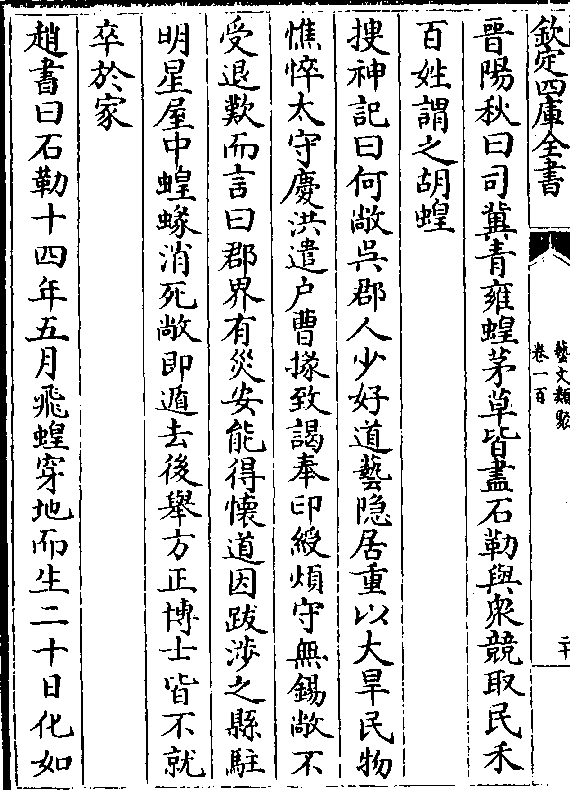 欽定四庫全書
藝文類聚
卷一百
二十
晉陽秋曰司冀青雍蝗茅草皆盡石勒與衆競取民禾
百姓謂之胡蝗
搜神記曰何敞吳郡人少好道藝隐居重以大旱民物
憔悴太守慶洪遣户曹掾致謁奉印綬煩守無錫敞不
受退歎而言曰郡界有災安能得懐道因跋涉之縣駐
明星屋中蝗蝝消死敞即遁去後舉方正博士皆不就
卒於家
趙書曰石勒十四年五月飛蝗穿地而生二十日化如